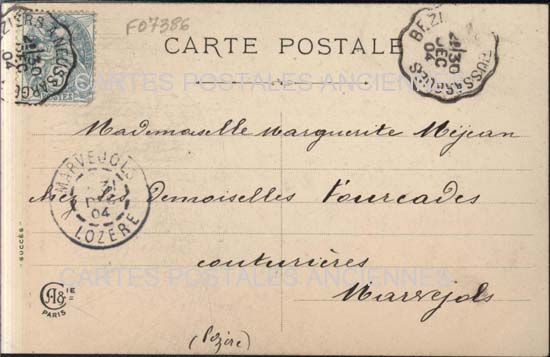 F07386
CARTE POSTALE
BÉZIERS A NEUSSARGUES
30
DEC
04
BEZI NEUSSARGUES
30
DEC
04
CARTES POSTALES ANCIENNES
Mademoiselle Marguerite Méjean
chez les Demoiselles Fourcades
MARVEJOLS
04
LOZERE
couturières
CARTES POSTALES ANCIENNES
Marvejols
(Lozère)
SUCCÈS
A& CIE
PARIS